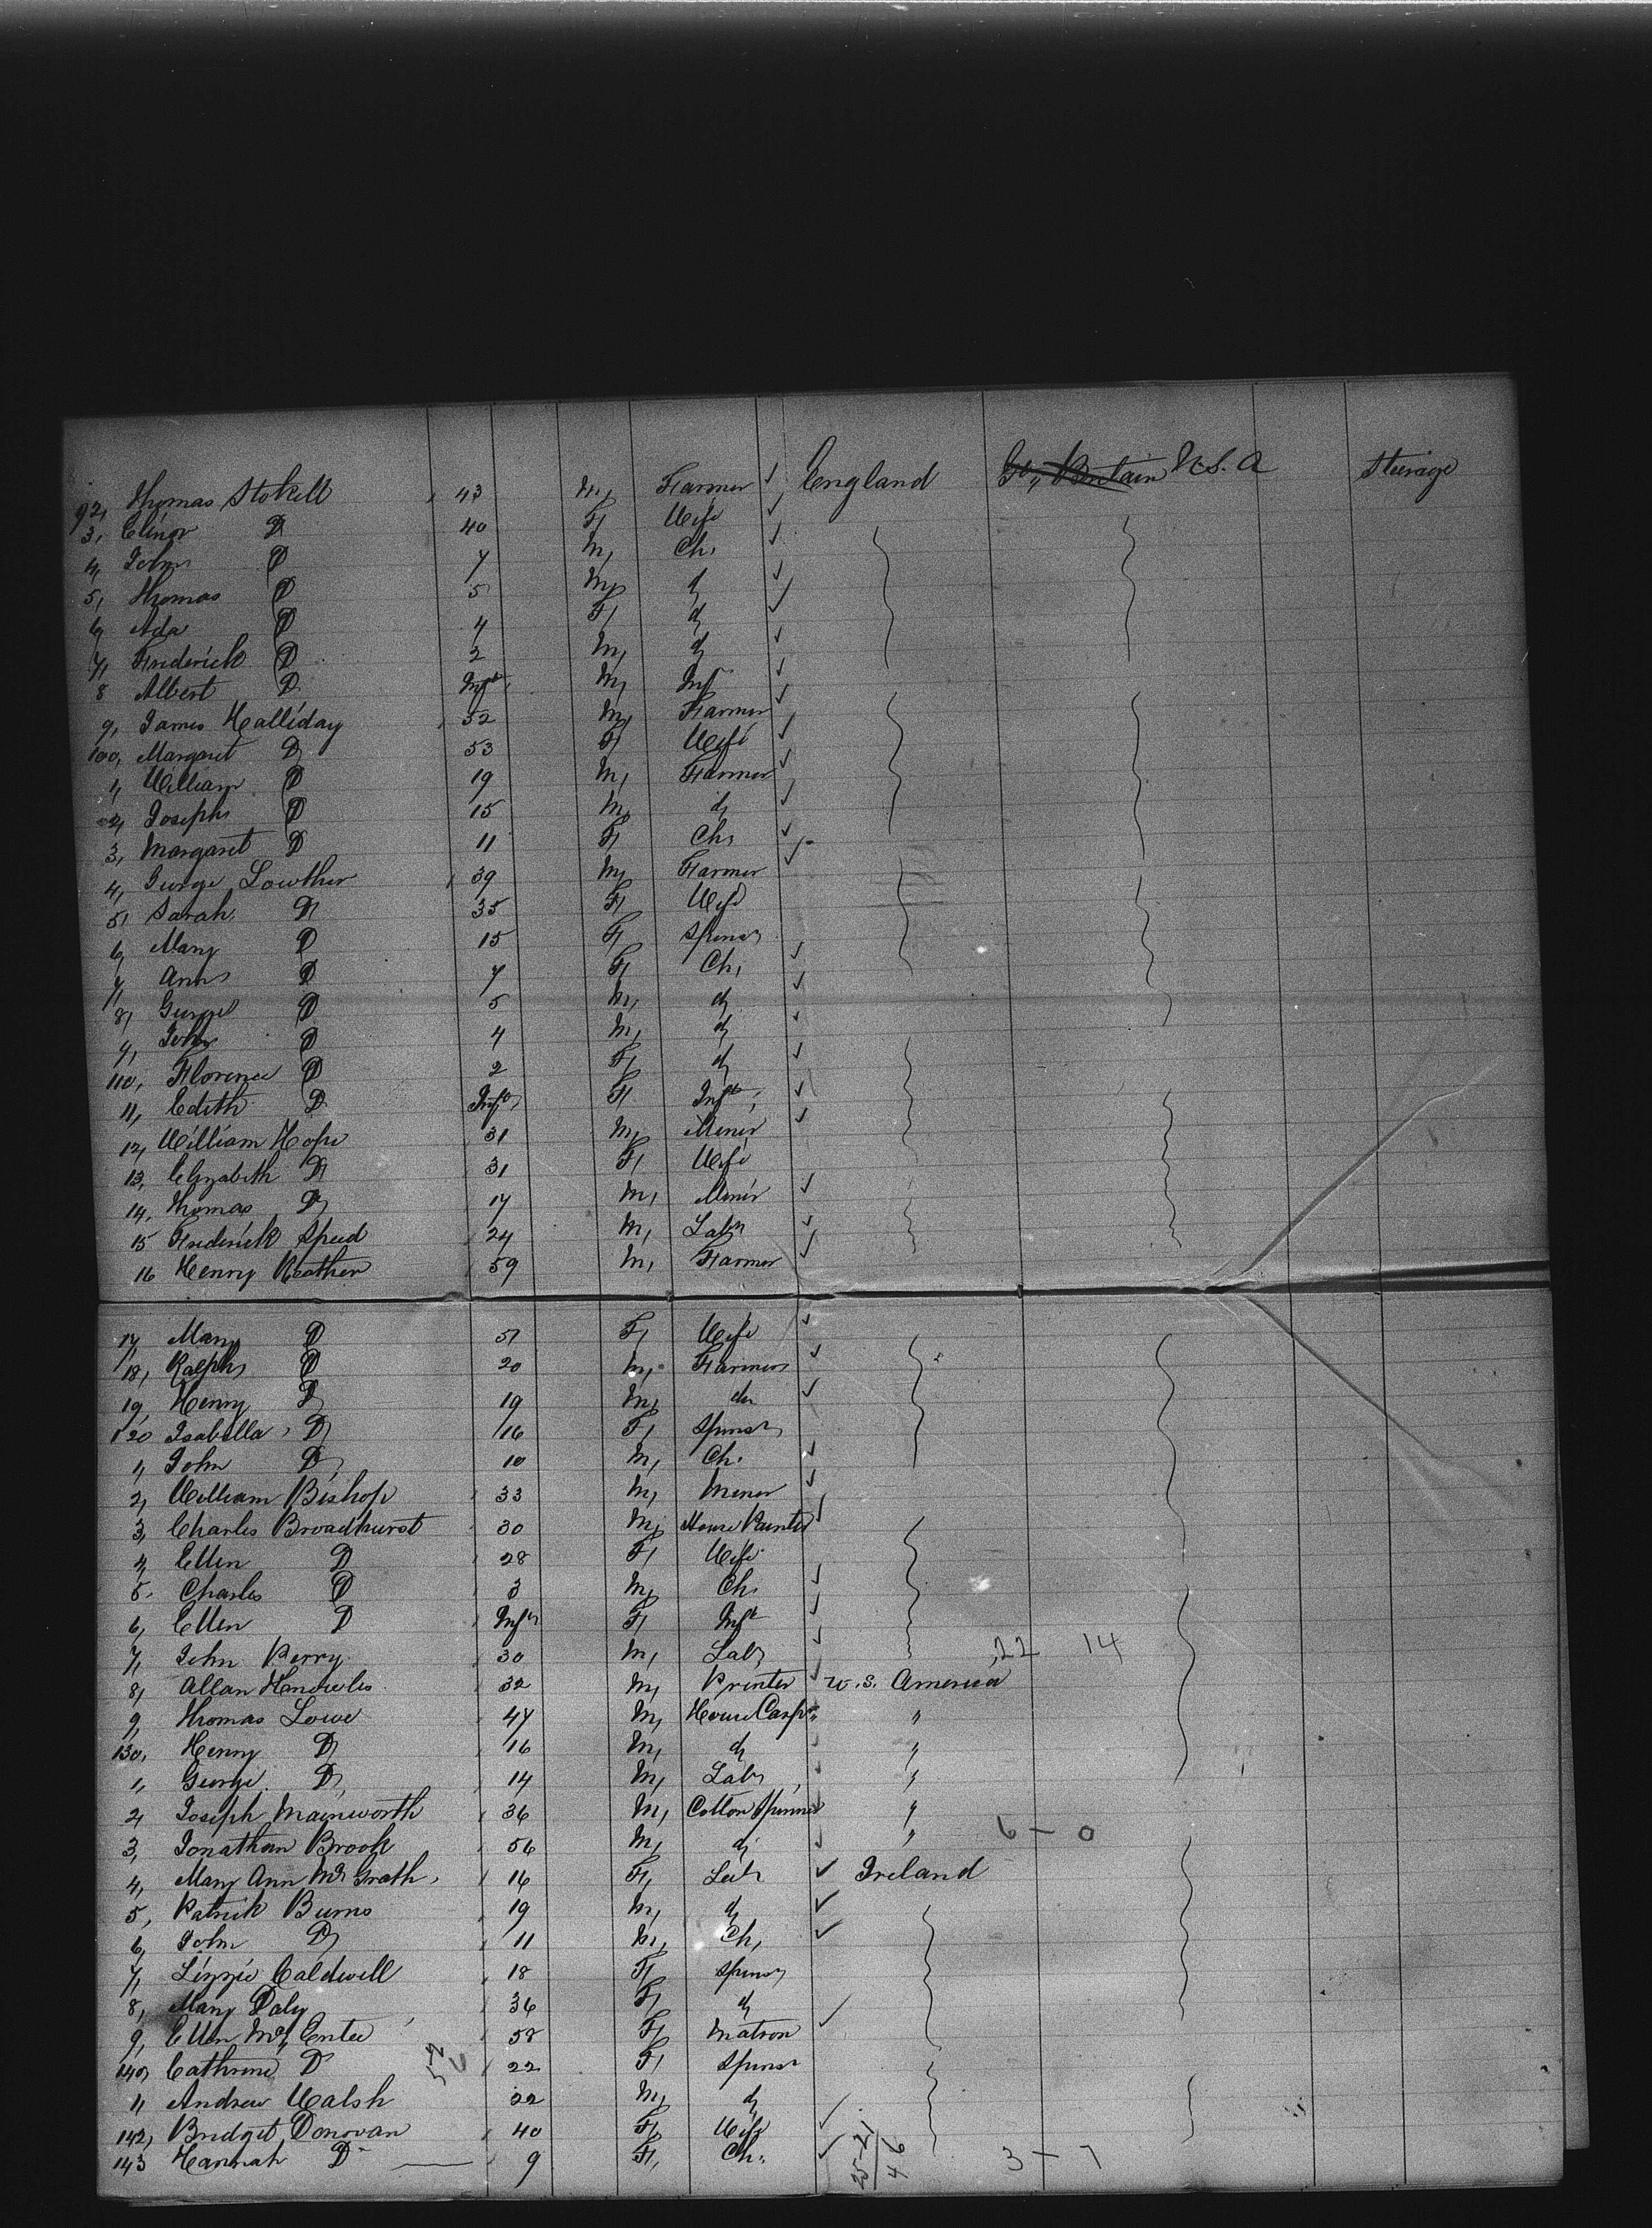 92, Thomas Stokell 43 M, Farmer ✓ England Gt, Britain U.S.A Steerage
3, Elinor D 40 F, Wife ✓
4, John D 7 M, Ch, ✓
5, Thomas D 5 M, d ✓
6, Ada D 4 F, d ✓
7, Frederick D 2 M, d ✓
8 Albert D Inft M, Inf ✓
9, James Halliday 52 M, Farmer ✓
100, Margaret D 53 F, Wife ✓
1, William D 19 M, Farmer ✓
2, Joseph D 15 M, d ✓
3, Margaret D 11 F, Ch, ✓
4, George Lowther 39 M, Farmer ✓
5, Sarah D 35 F, Wife
6, Mary D 15 F, Spinsr
7, Ann D 7 F, Ch, ✓
8, George D 5 M, d ✓
9, John D 4 M, d ✓
110, Florence D 2 F, d ✓
11, Edith D Inft F, Inft, ✓
12, William Hope 31 M, Miner ✓
13, Elizabeth D 31 F, Wife
14, Thomas D 17 M, Miner ✓
15 Frederick Speed 24 M, Labr ✓
16 Henry Heather 59 M, Farmer ✓
17, Mary D 51 F, Wife ✓
18, Ralph D 20 M, Farmer ✓
19, Henry D 19 M, do ✓
120 Isabella D 16 F, Spinsr
1, John D 10 M, Ch. ✓
2, William Bishop 33 M, Miner ✓
3, Charles Broadhurst 30 M, House Painter ✓
4, Ellen D 28 F, Wife
5, Charles D 3 M, Ch. ✓
6, Ellen D Inft F, Inft ✓
7, John Perry 30 M, Labr ✓ 22 14
8, Allan Hendwles 32 M, Printer ✓ U.S. America
9, Thomas Lowe 47 M, House Carpr "
130, Henry D 16 M, d ✓ "
1, George D 14 M, Labr ✓ "
2, Joseph Mainworth 36 M, Cotton Spinner "
3, Jonathan Brook 56 M, d ✓ " 6 - 0
4, Mary Ann McGrath 16 F, Labr ✓ Ireland
5, Patrick Burns 19 M, d ✓
6, John D 11 M, Ch, ✓
7, Lizzie Caldwell 18 F, Spinsr
8, Mary Daly 36 F, d
9, Ellen McEntee 58 F, Matron ✓
140, Cathrine D 22 F, Spinsr
11 Andrew Walsh 22 M, d
142, Bridget Donovan 40 F, Wife ✓
143 Hannah D 9 F, Ch. ✓ 3 - 7